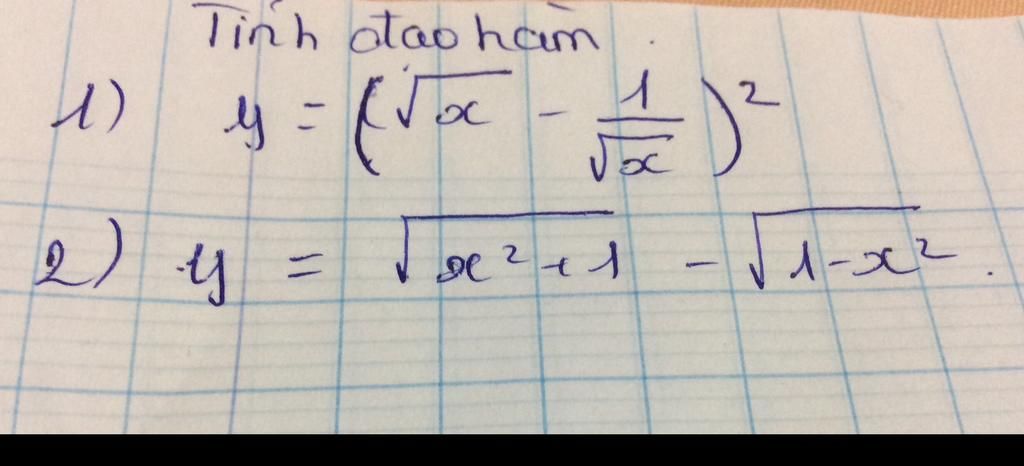 Tính đạo hàm.
1) y = (√x - 1/√x)²
2) y = √(x² + 1) - √(1 - x²).